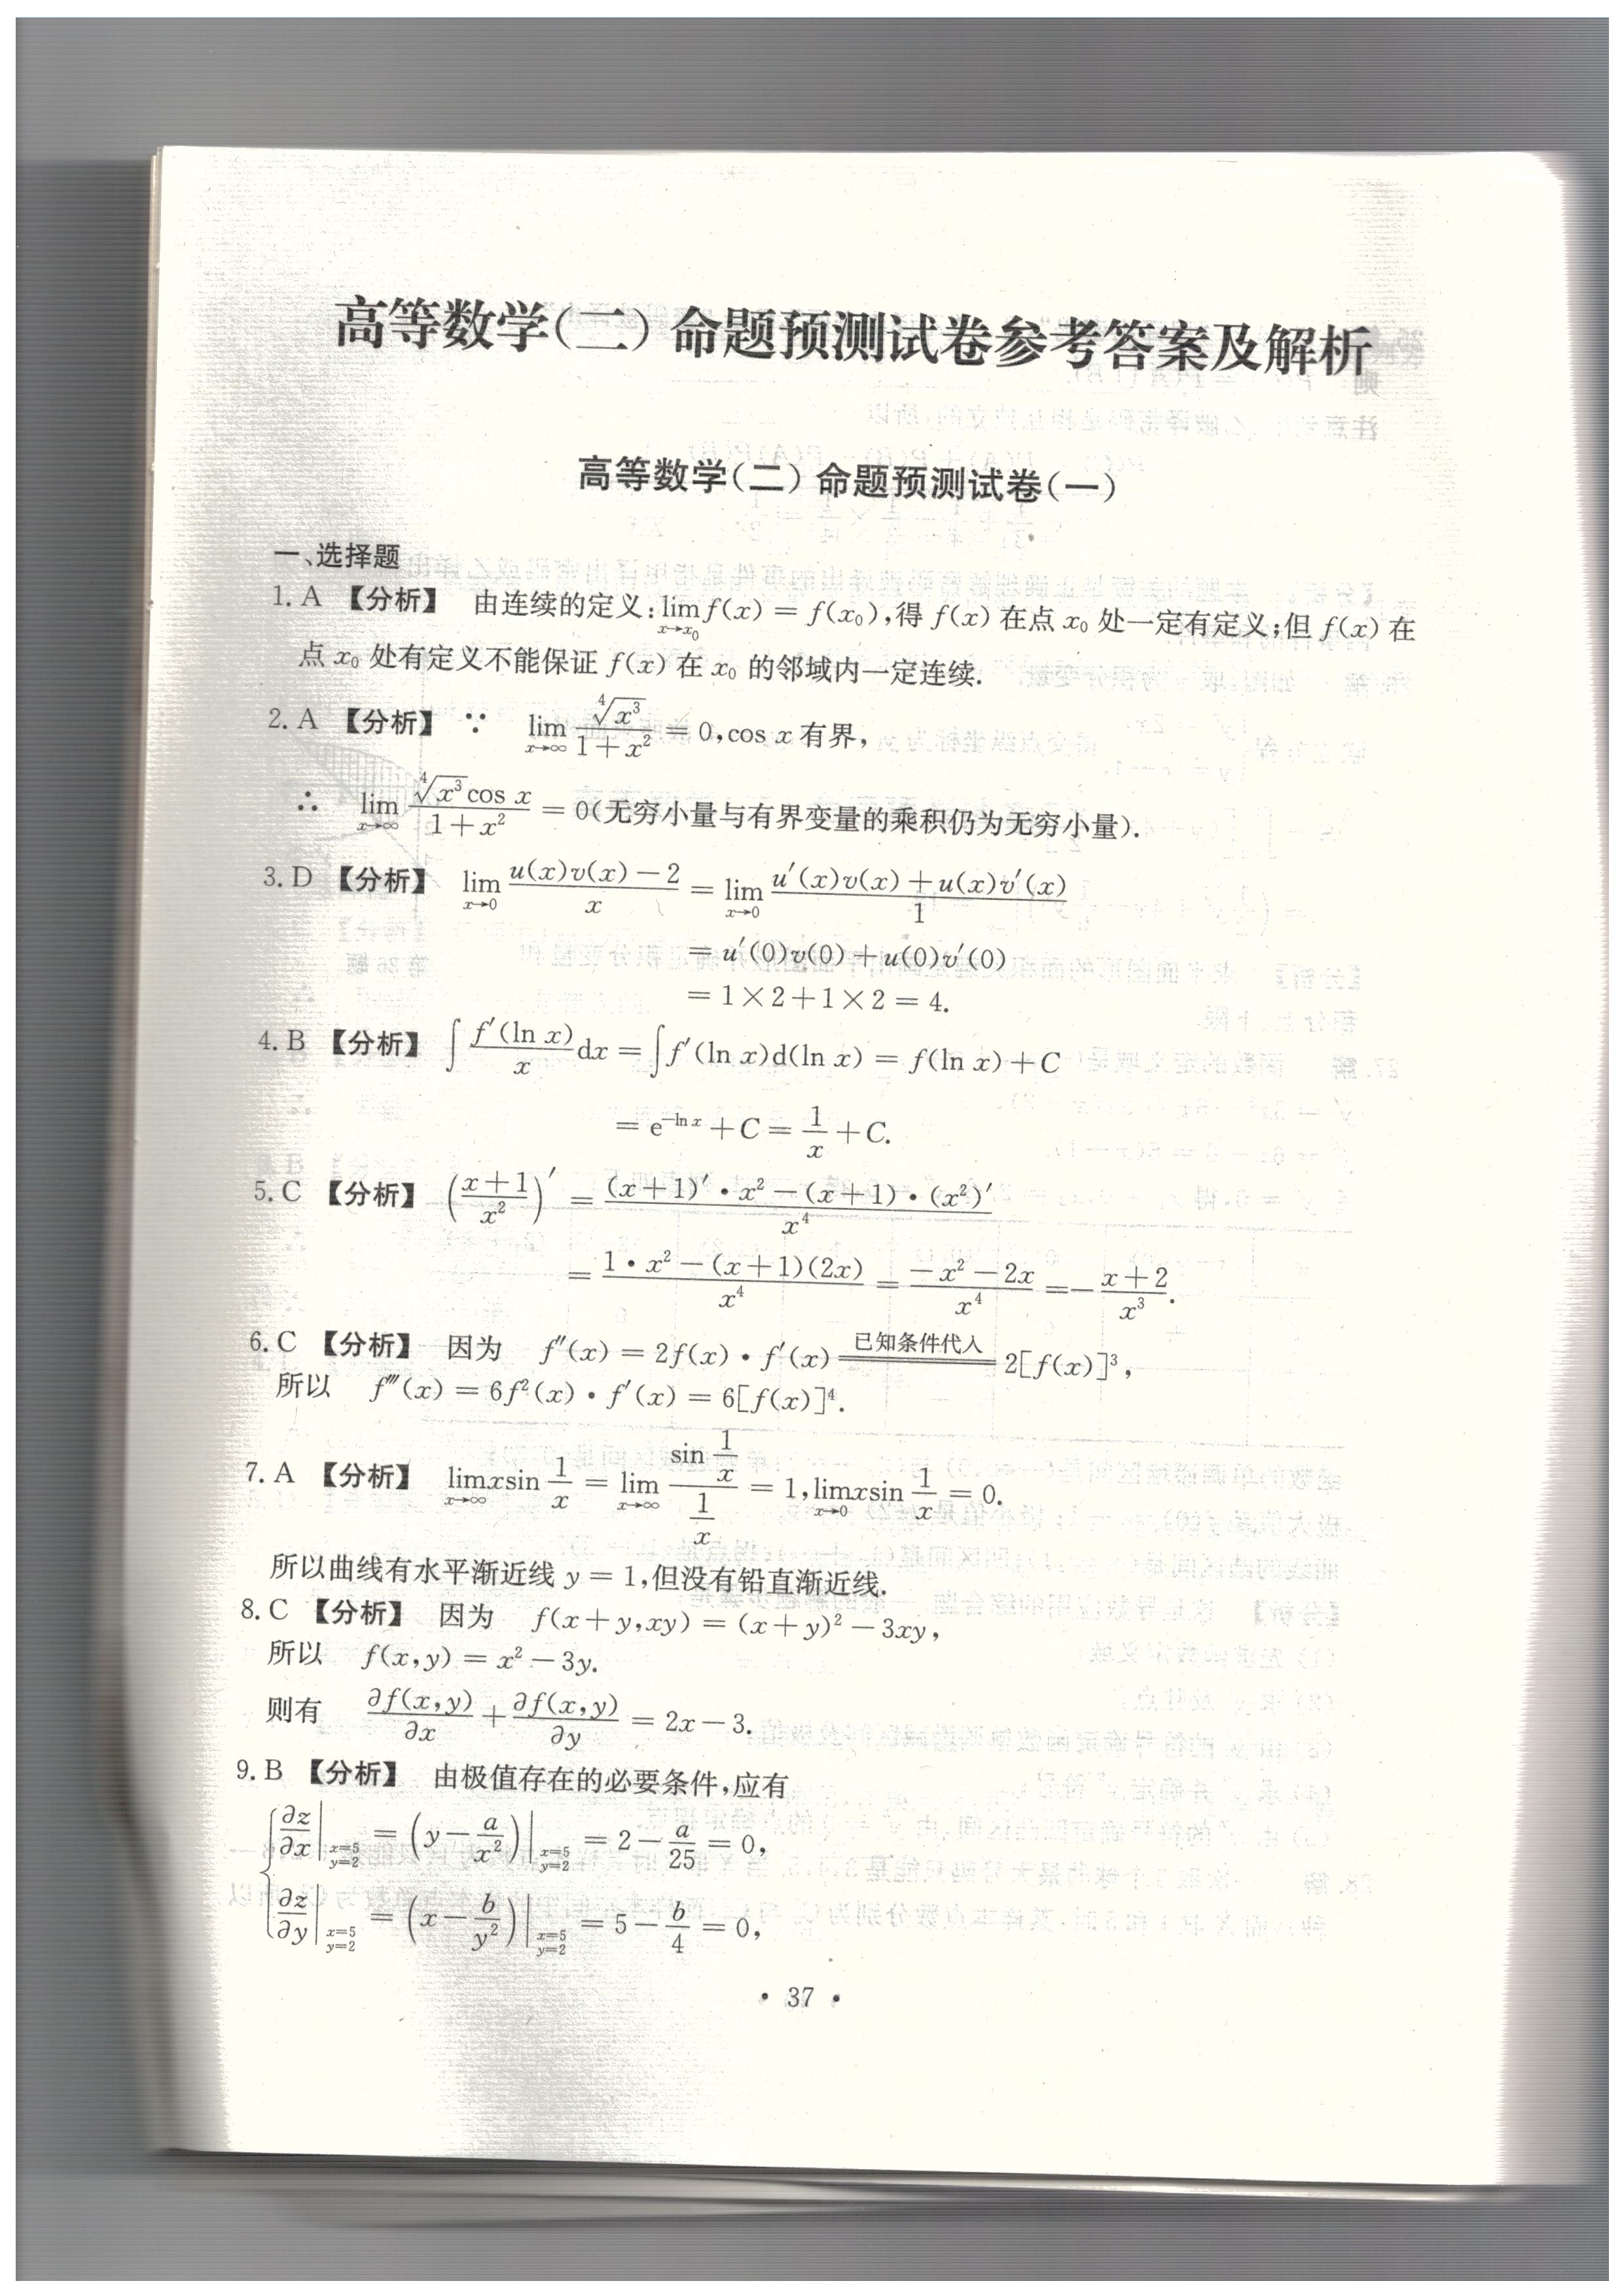 高等数学(二) 命题预测试卷参考答案及解析
高等数学(二) 命题预测试卷(一)
一、选择题
1. A 【分析】 由连续的定义:$\lim\limits_{x\to x_0} f(x) = f(x_0)$,得 $f(x)$ 在点 $x_0$ 处一定有定义;但 $f(x)$ 在
点 $x_0$ 处有定义不能保证 $f(x)$ 在 $x_0$ 的邻域内一定连续.
2. A 【分析】 ∵ $\lim\limits_{x\to\infty} \frac{\sqrt[4]{x^3}}{1+x^2} = 0$,$\cos x$ 有界,
∴ $\lim\limits_{x\to\infty} \frac{\sqrt[4]{x^3}\cos x}{1+x^2} = 0$(无穷小量与有界变量的乘积仍为无穷小量).
3. D 【分析】 $\lim\limits_{x\to 0} \frac{u(x)v(x)-2}{x} = \lim\limits_{x\to 0} \frac{u'(x)v(x)+u(x)v'(x)}{1}$
$= u'(0)v(0)+u(0)v'(0)$
$= 1\times 2+1\times 2 = 4.$
4. B 【分析】 $\int \frac{f'(\ln x)}{x}\mathrm{d}x = \int f'(\ln x)\mathrm{d}(\ln x) = f(\ln x)+C$
$= \mathrm{e}^{-\ln x}+C = \frac{1}{x}+C.$
5. C 【分析】 $\left(\frac{x+1}{x^2}\right)' = \frac{(x+1)'\cdot x^2-(x+1)\cdot(x^2)'}{x^4}$
$= \frac{1\cdot x^2-(x+1)(2x)}{x^4} = \frac{-x^2-2x}{x^4} = -\frac{x+2}{x^3}.$
6. C 【分析】 因为 $f''(x) = 2f(x)\cdot f'(x) \xlongequal{\text{已知条件代入}} 2[f(x)]^3$,
所以 $f'''(x) = 6f^2(x)\cdot f'(x) = 6[f(x)]^4.$
7. A 【分析】 $\lim\limits_{x\to\infty} x\sin\frac{1}{x} = \lim\limits_{x\to\infty} \frac{\sin\frac{1}{x}}{\frac{1}{x}} = 1, \lim\limits_{x\to 0} x\sin\frac{1}{x} = 0.$
所以曲线有水平渐近线 $y = 1$,但没有铅直渐近线.
8. C 【分析】 因为 $f(x+y,xy) = (x+y)^2-3xy$,
所以 $f(x,y) = x^2-3y.$
则有 $\frac{\partial f(x,y)}{\partial x}+\frac{\partial f(x,y)}{\partial y} = 2x-3.$
9. B 【分析】 由极值存在的必要条件,应有
$\left\{\frac{\partial z}{\partial x}\right|_{\substack{x=5\\y=2}} = \left(y-\frac{a}{x^2}\right)\Big|_{\substack{x=5\\y=2}} = 2-\frac{a}{25} = 0,$
$\frac{\partial z}{\partial y}\Big|_{\substack{x=5\\y=2}} = \left(x-\frac{b}{y^2}\right)\Big|_{\substack{x=5\\y=2}} = 5-\frac{b}{4} = 0,$
• 37 •